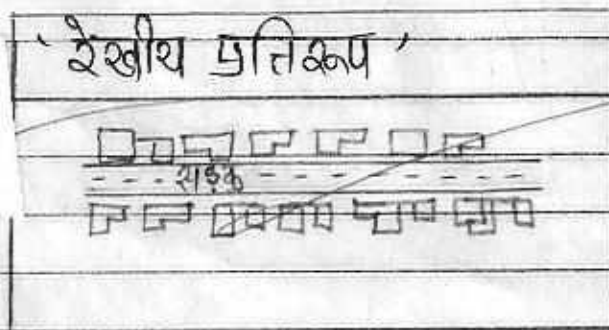 'रेखीय प्रतिरूप'
सड़क